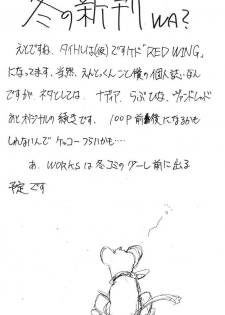 冬の新刊 WA?
えとですね、タイトルは(仮)ですケド"RED WING"
になってます。当然、えとっくんこと僕の個人誌なん
ですが、ネタとしては ナディア、らぶひな、ヴァンドレッド
あとオリジナルの続きです。100P前後になるかも
しれないんで ケッコーつらいかも…
あ、WORKSは冬コミのケーし前に出る
予定です